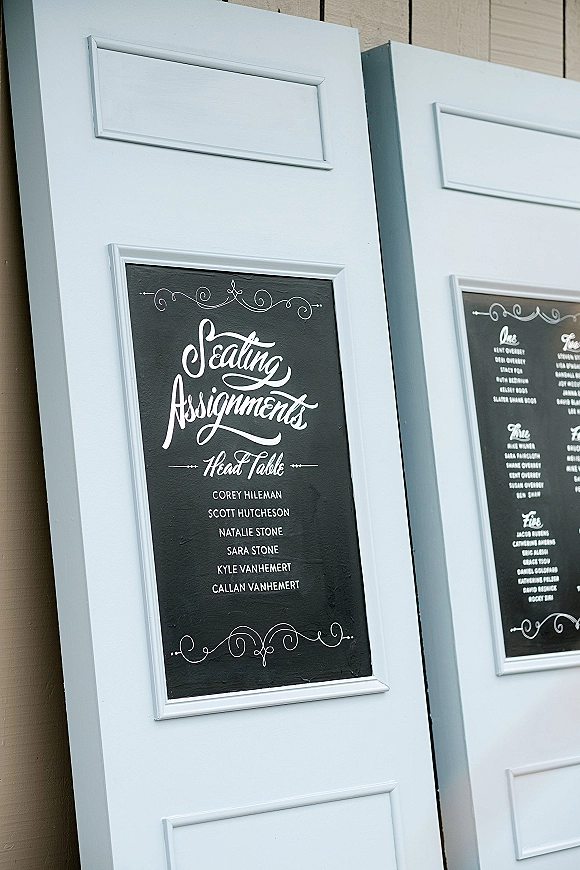 Seating
Assignments
Head Table
COREY HILEMAN
SCOTT HUTCHESON
NATALIE STONE
SARA STONE
KYLE VANHEMERT
CALLAN VANHEMERT
One
KENT OVERBEY
DEBI OVERBEY
STACY FOX
RUTH REDINIUM
KELSEY BOGS
SLATER SHANE BOGS
Three
MIKE WILNER
SARA FAIRCLOTH
SHANE OVERBEY
KENT OVERBEY
SUSAN OVERBEY
BEN SHAW
Five
JACOB RUBENS
CATHERINE AHERNS
ERIC ALESSI
GRACE TSOU
DANIEL GOLDFARB
KATHERINE PELZER
DAVID REDNICK
ROCKY ZIRI